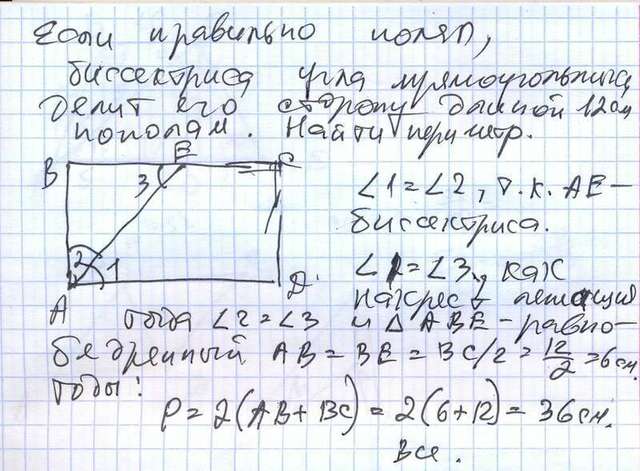 Если правильно понял,
биссектриса угла прямоугольника
делит его сторону длиной 12см
пополам. Найти периметр.
B E C
3
2 1
A D
∠1=∠2, т.к. AE-
биссектриса.
∠1=∠3, как
накрест лежащие
тогда ∠2=∠3 и △ABE-равно-
бедренный AB=BE=BC/2=12/2=6см.
тогда:
P=2(AB+BC)=2(6+12)=36см.
Все.